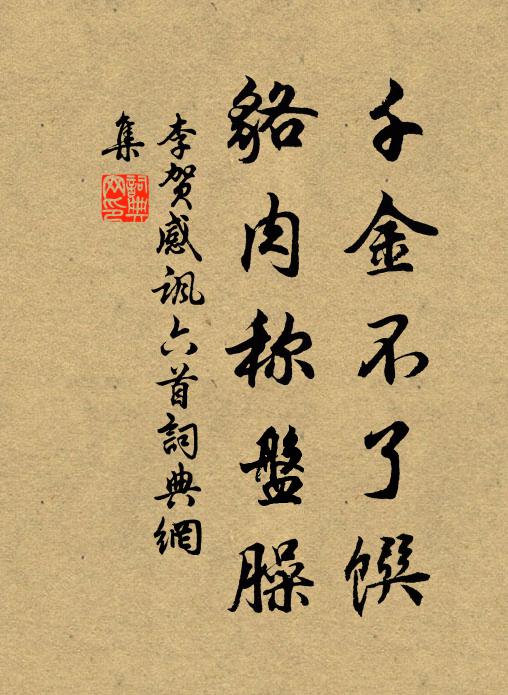 千金不了馔
貉肉称盤臊
李贺感讽六首詞典網
集
詞典網印